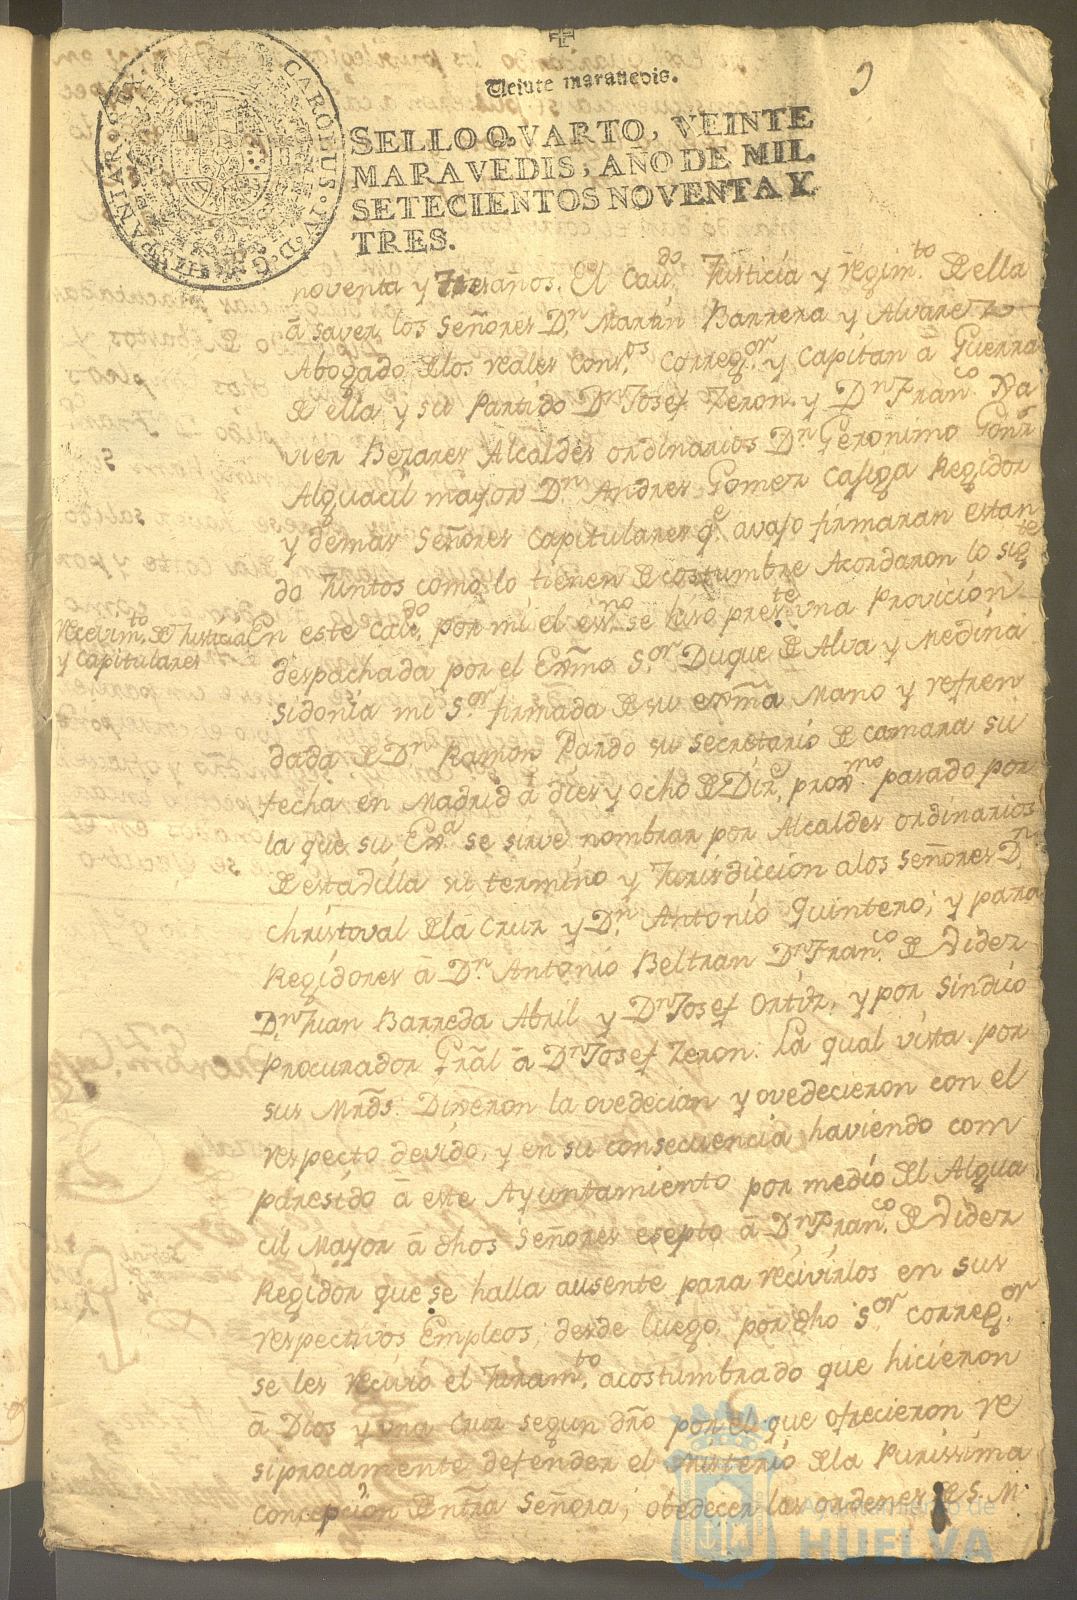 Veinte maravedis.
CAROLUS·IV·D·G·HISPANIAR·REX
SELLO QVARTO, VEINTE
MARAVEDIS, AÑO DE MIL
SETECIENTOS NOVENTA Y
TRES.
noventa y Tres anos. El Cavdo. Justicia y regimto. de ella
â saver los Señores Dn. Martin Barrera y Alvarez
Abogado de los reales Consos. Corregor. y Capitan â Guerra
de ella y su Partido Dn Josef Zeron y Dn Franco. Xa
vier Bezares Alcaldes ordinarios Dn Geronimo Gonz
Alguacil mayor Dn Andres Gomez Regidor
y demas Señores Capitulares qe. avajo firmaran estan
do Juntos como lo tienen de costumbre Acordaron lo sigte
Recivimto. de Justicia
y Capitulares
En este Cavdo. por mi el esno. se hiso preste. una Provicion
despachada por el Exmo. Sor. Duque de Alva y Medina
sidonia mi Sor. firmada de su exma Mano y refren
dada de Dn Ramon Pardo su Secretario de Camara su
fecha en Madrid â dies y ocho de Dize. proxmo. pasado por
la que su Exa. se sirve nombrar por Alcaldes ordinarios
de esta Villa su termino y Jurisdiccion alos Señores Dn.
Christoval de la Cruz y Dn. Antonio Quintero; y para
Regidores â Dn. Antonio Beltran Dn Franco. de Videz
Dn Juan Barreda Abril y Dn Josef Ortiz, y por Sindico
Procurador Gral â Dn Josef Zeron. La qual vista por
sus Mrds. Dixeron la ovedecian y ovedecieron con el
respecto devido, y en su consecuencia haviendo com
paresido â este Ayuntamiento por medio del Algua
cil Mayor â dhos Señores esepto â Dn Franco. de Videz
Regidor que se halla ausente para recivirlos en sus
respectivos Empleos, desde luego por dho Sor Corregor.
se les recivió el Juramto. acostumbrado que hicieron
â Dios y una Cruz segun dro por el que ofrecieron re
siprocamente defender el Misterio de la Purissima
Concepcion de ntra Señora; obedecer las ordenes de S. M.
Ayuntamiento de
HUELVA